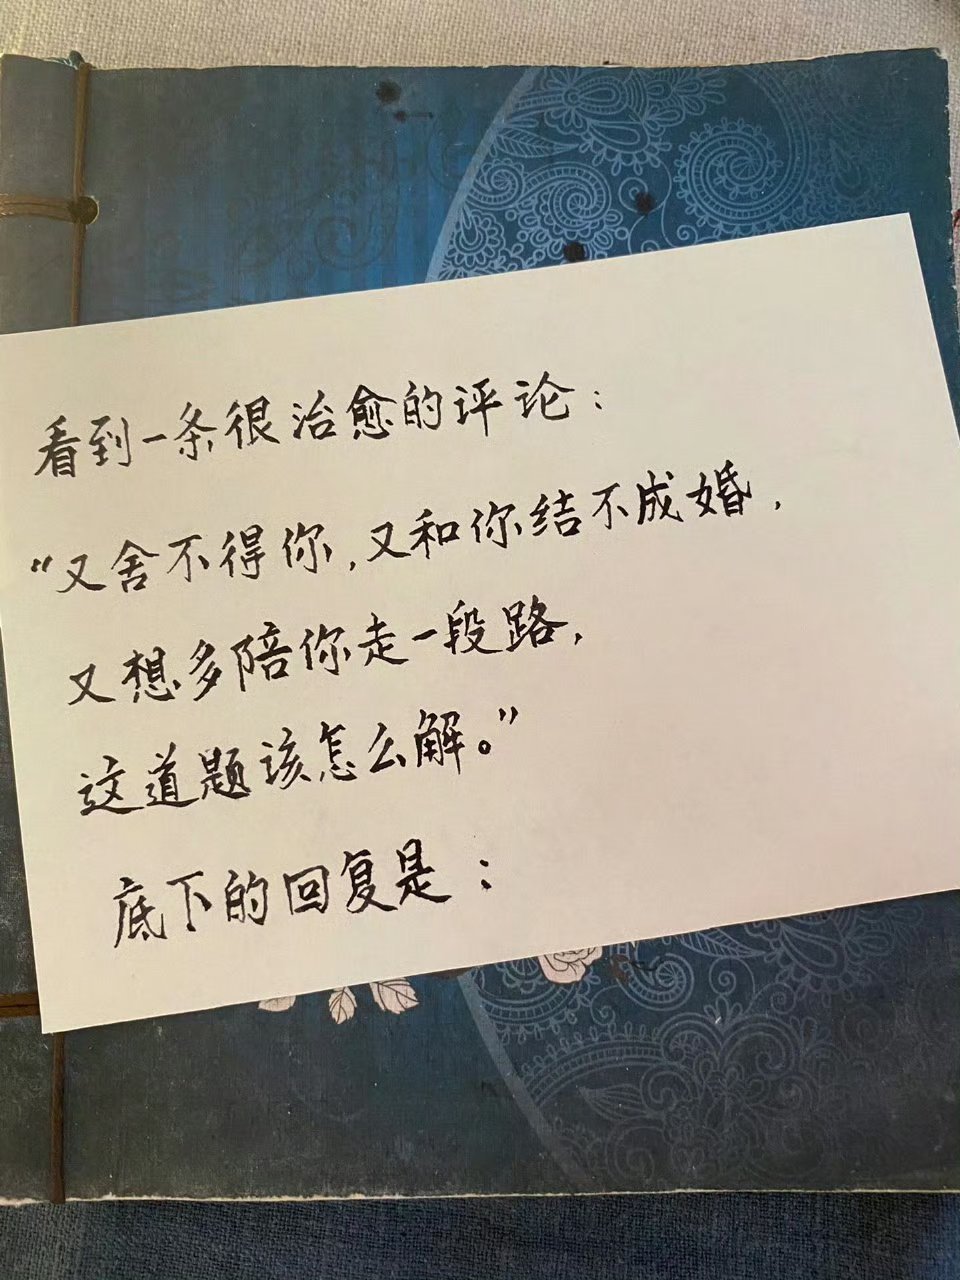 看到一条很治愈的评论：
“又舍不得你，又和你结不成婚，
又想多陪你走一段路，
这道题该怎么解。”
底下的回复是：